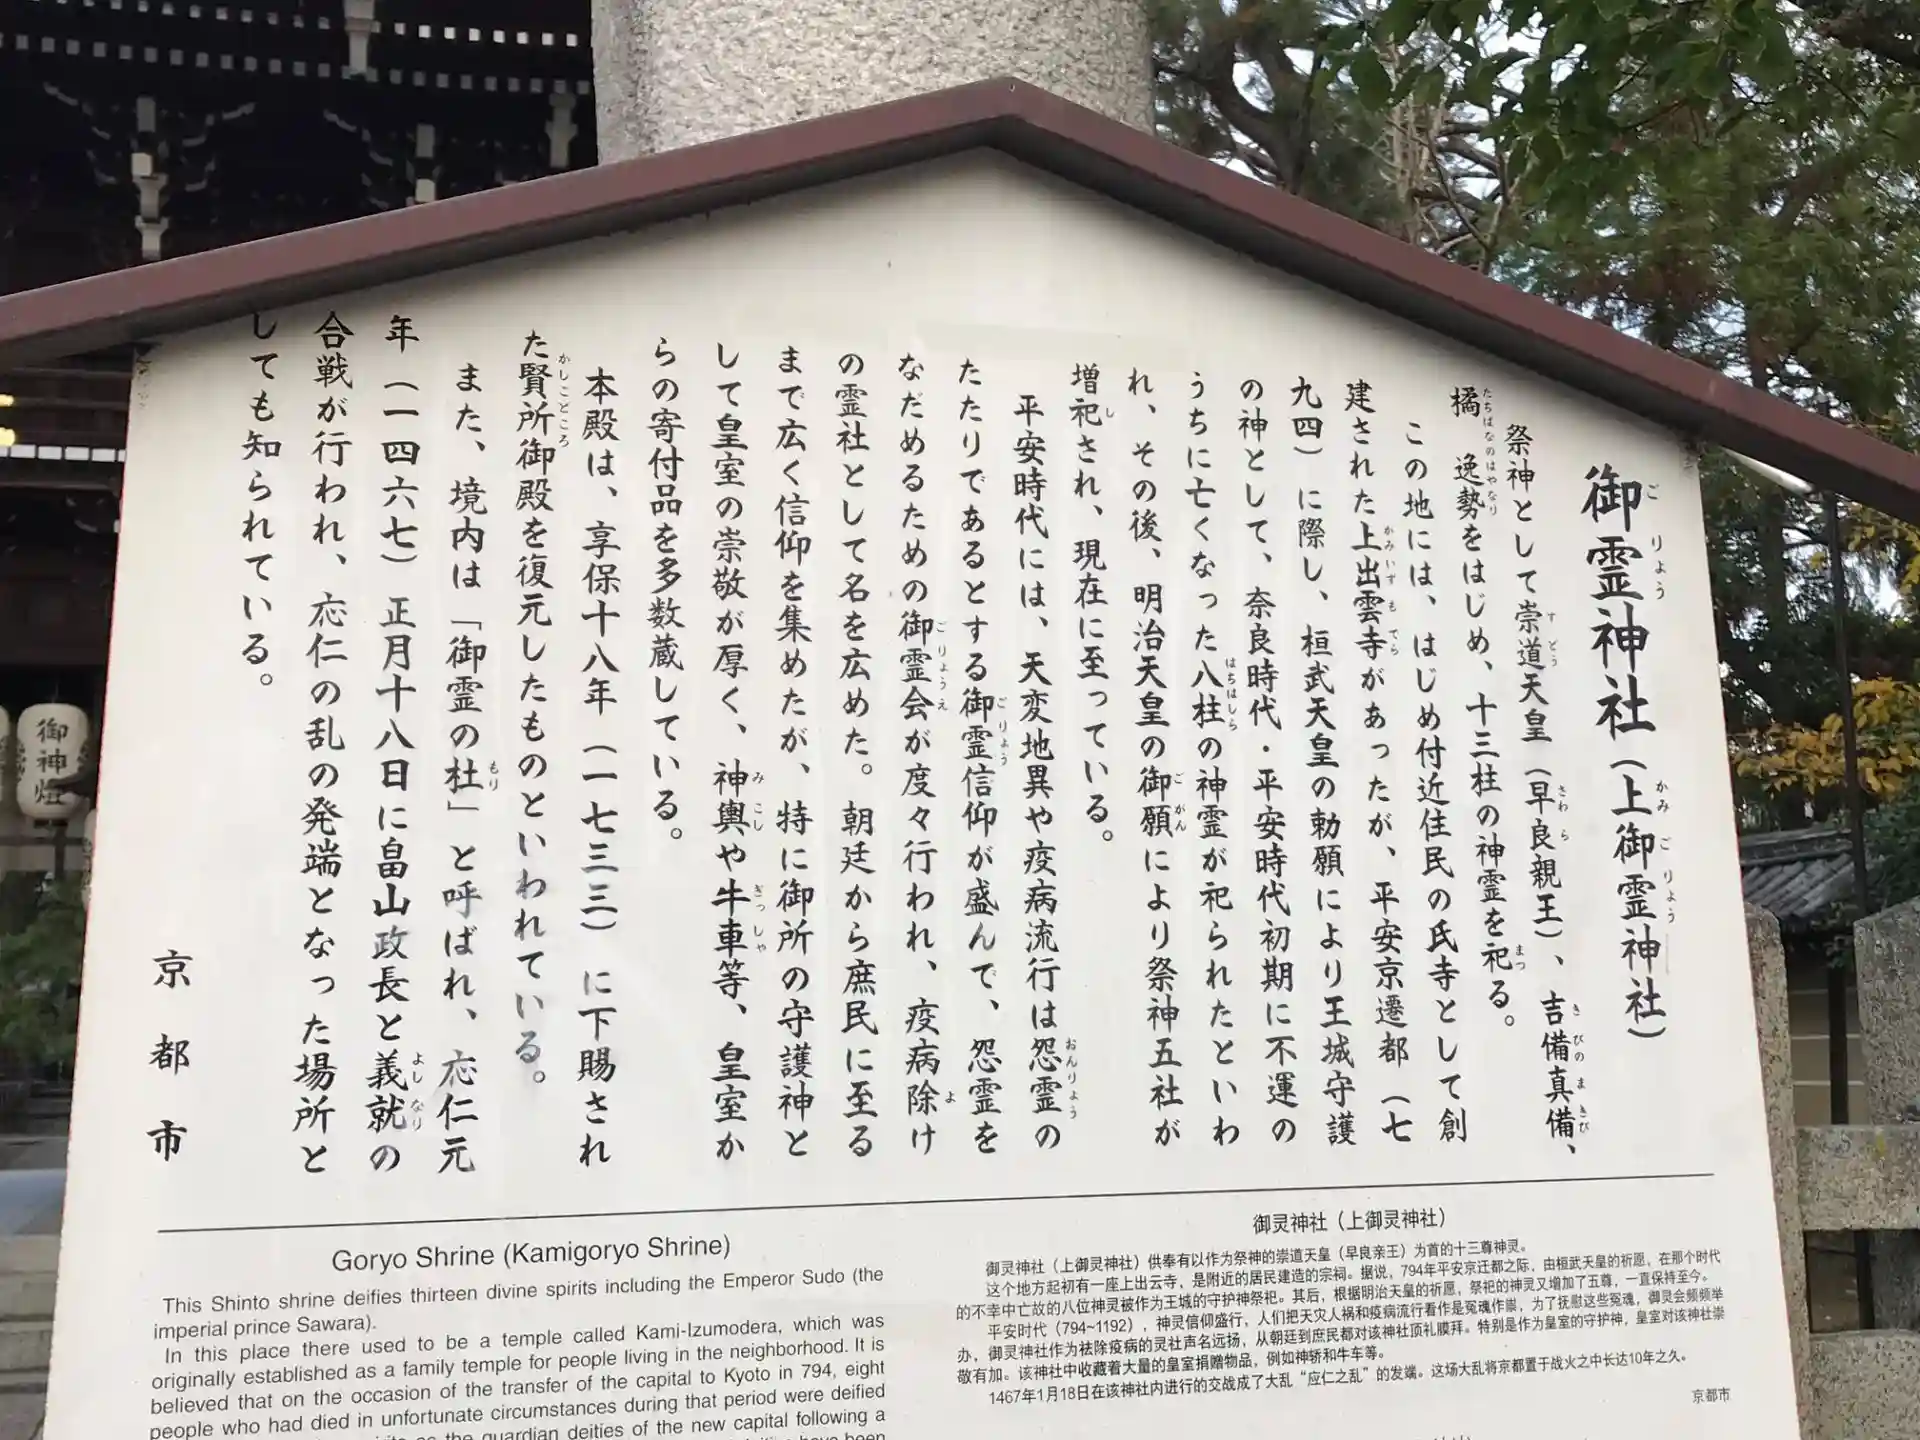 御霊神社（上御霊神社）
祭神として崇道天皇（早良親王）、吉備真備、
橘逸勢をはじめ、十三柱の神霊を祀る。
この地には、はじめ付近住民の氏寺として創
建された上出雲寺があったが、平安京遷都（七
九四）に際し、桓武天皇の勅願により王城守護
の神として、奈良時代・平安時代初期に不運の
うちに亡くなった八柱の神霊が祀られたといわ
れ、その後、明治天皇の御願により祭神五社が
増祀され、現在に至っている。
平安時代には、天変地異や疫病流行は怨霊の
たたりであるとする御霊信仰が盛んで、怨霊を
なだめるための御霊会が度々行われ、疫病除け
の霊社として名を広めた。朝廷から庶民に至る
まで広く信仰を集めたが、特に御所の守護神と
して皇室の崇敬が厚く、神輿や牛車等、皇室か
らの寄付品を多数蔵している。
本殿は、享保十八年（一七三三）に下賜され
た賢所御殿を復元したものといわれている。
また、境内は「御霊の杜」と呼ばれ、応仁元
年（一四六七）正月十八日に畠山政長と義就の
合戦が行われ、応仁の乱の発端となった場所と
しても知られている。
京都市
Goryo Shrine (Kamigoryo Shrine)
This Shinto shrine deifies thirteen divine spirits including the Emperor Sudo (the
imperial prince Sawara).
In this place there used to be a temple called Kami-Izumodera, which was
originally established as a family temple for people living in the neighborhood. It is
believed that on the occasion of the transfer of the capital to Kyoto in 794, eight
people who had died in unfortunate circumstances during that period were deified
as the guardian deities of the new capital following a
have been
御灵神社（上御灵神社）
御灵神社（上御灵神社）供奉有以作为祭神的崇道天皇（早良亲王）为首的十三尊神灵。
这个地方起初有一座上出云寺，是附近的居民建造的宗祠。据说，794年平安京迁都之际，由桓武天皇的祈愿，在那个时代
的不幸中亡故的八位神灵被作为王城的守护神祭祀。其后，根据明治天皇的祈愿，祭祀的神灵又增加了五尊，一直保持至今。
平安时代（794~1192），神灵信仰盛行，人们把天灾人祸和疫病流行看作是冤魂作祟，为了抚慰这些冤魂，御灵会频频举
办，御灵神社作为祛除疫病的灵社声名远扬，从朝廷到庶民都对该神社顶礼膜拜。特别是作为皇室的守护神，皇室对该神社崇
敬有加。该神社中收藏着大量的皇室捐赠物品，例如神轿和牛车等。
1467年1月18日在该神社内进行的交战成了大乱“应仁之乱”的发端。这场大乱将京都置于战火之中长达10年之久。
京都市
御神燈